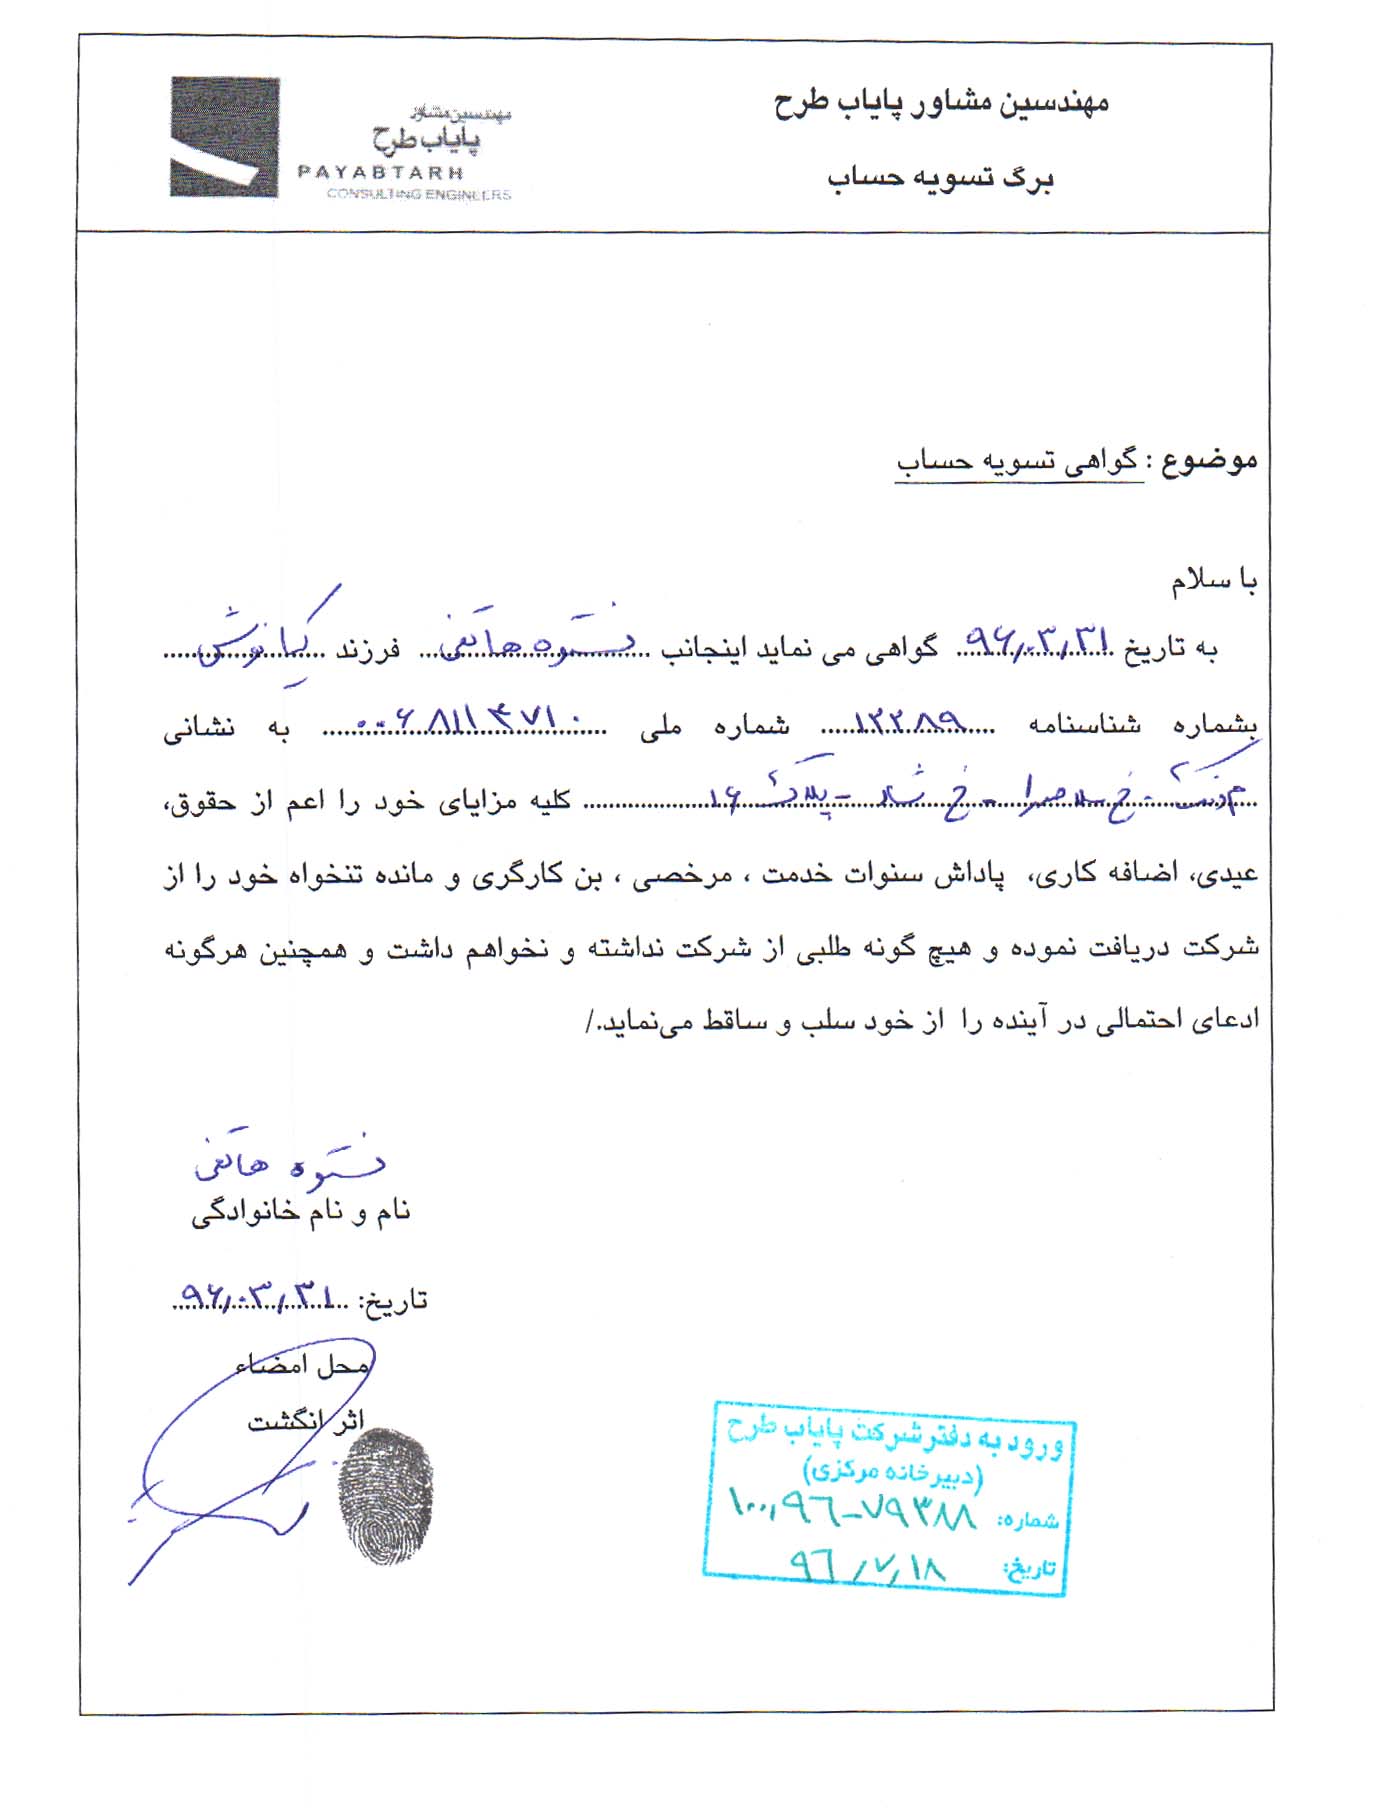 مهندسین مشاور پایاب طرح
برگ تسویه حساب
مهندسین مشاور
پایاب طرح
PAYABTARH
CONSULTING ENGINEERS
موضوع : گواهی تسویه حساب
با سلام
به تاریخ ۹۶/۰۳/۳۱ گواهی می نماید اینجانب هاتفی فرزند کیانوش
بشماره شناسنامه ۱۲۲۸۹ شماره ملی ۰۰۶۸۱۱۳۷۱۰ به نشانی
خ ملاصدرا - خ شاد - پلاک ۱۶ کلیه مزایای خود را اعم از حقوق،
عیدی، اضافه کاری، پاداش سنوات خدمت ، مرخصی ، بن کارگری و مانده تنخواه خود را از
شرکت دریافت نموده و هیچ گونه طلبی از شرکت نداشته و نخواهم داشت و همچنین هرگونه
ادعای احتمالی در آینده را از خود سلب و ساقط می‌نماید./
هاتفی
نام و نام خانوادگی
تاریخ: ۹۶/۰۳/۳۱
محل امضاء
اثر انگشت
ورود به دفتر شرکت پایاب طرح
(دبیرخانه مرکزی)
شماره: ۱۰۰,۹۶-۷۹۳۸۸
تاریخ: ۹۶/۷/۱۸